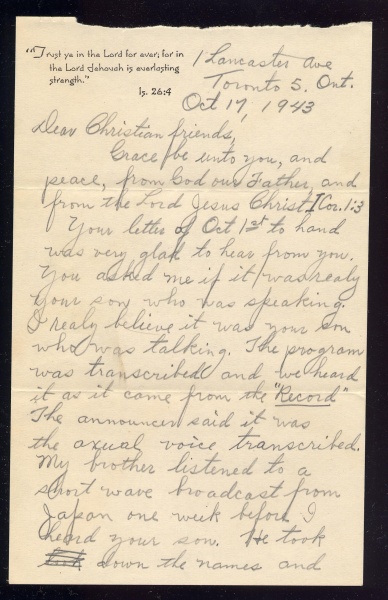 "Trust ye in the Lord for ever; for in
the Lord Jehovah is everlasting
strength."
Is. 26:4
1 Lancaster Ave
Toronto 5. Ont.
Oct 17, 1943
Dear Christian friends,
Grace be unto you, and
peace, from God our Father, and
from the Lord Jesus Christ I Cor. 1:3
Your letter of Oct 1st to hand
was very glad to hear from you.
You asked me if it was realy
your son who was speaking.
I realy believe it was your son
who was talking. The program
was transcribed and we heard
it as it came from the "Record"
The announcer said it was
the axual voice transcribed.
My brother listened to a
short wave broadcast from
Japan one week before I
heard your son. He took
down the names and